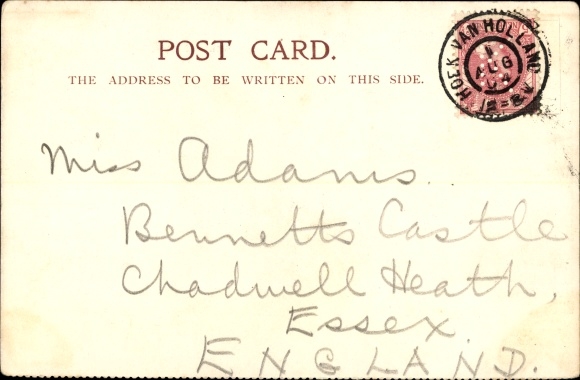 POST CARD.
THE ADDRESS TO BE WRITTEN ON THIS SIDE.
HOEK VAN HOLLAND
1
AUG
04
Miss Adams.
Bennetts Castle
Chadwell Heath,
Essex
ENGLAND.